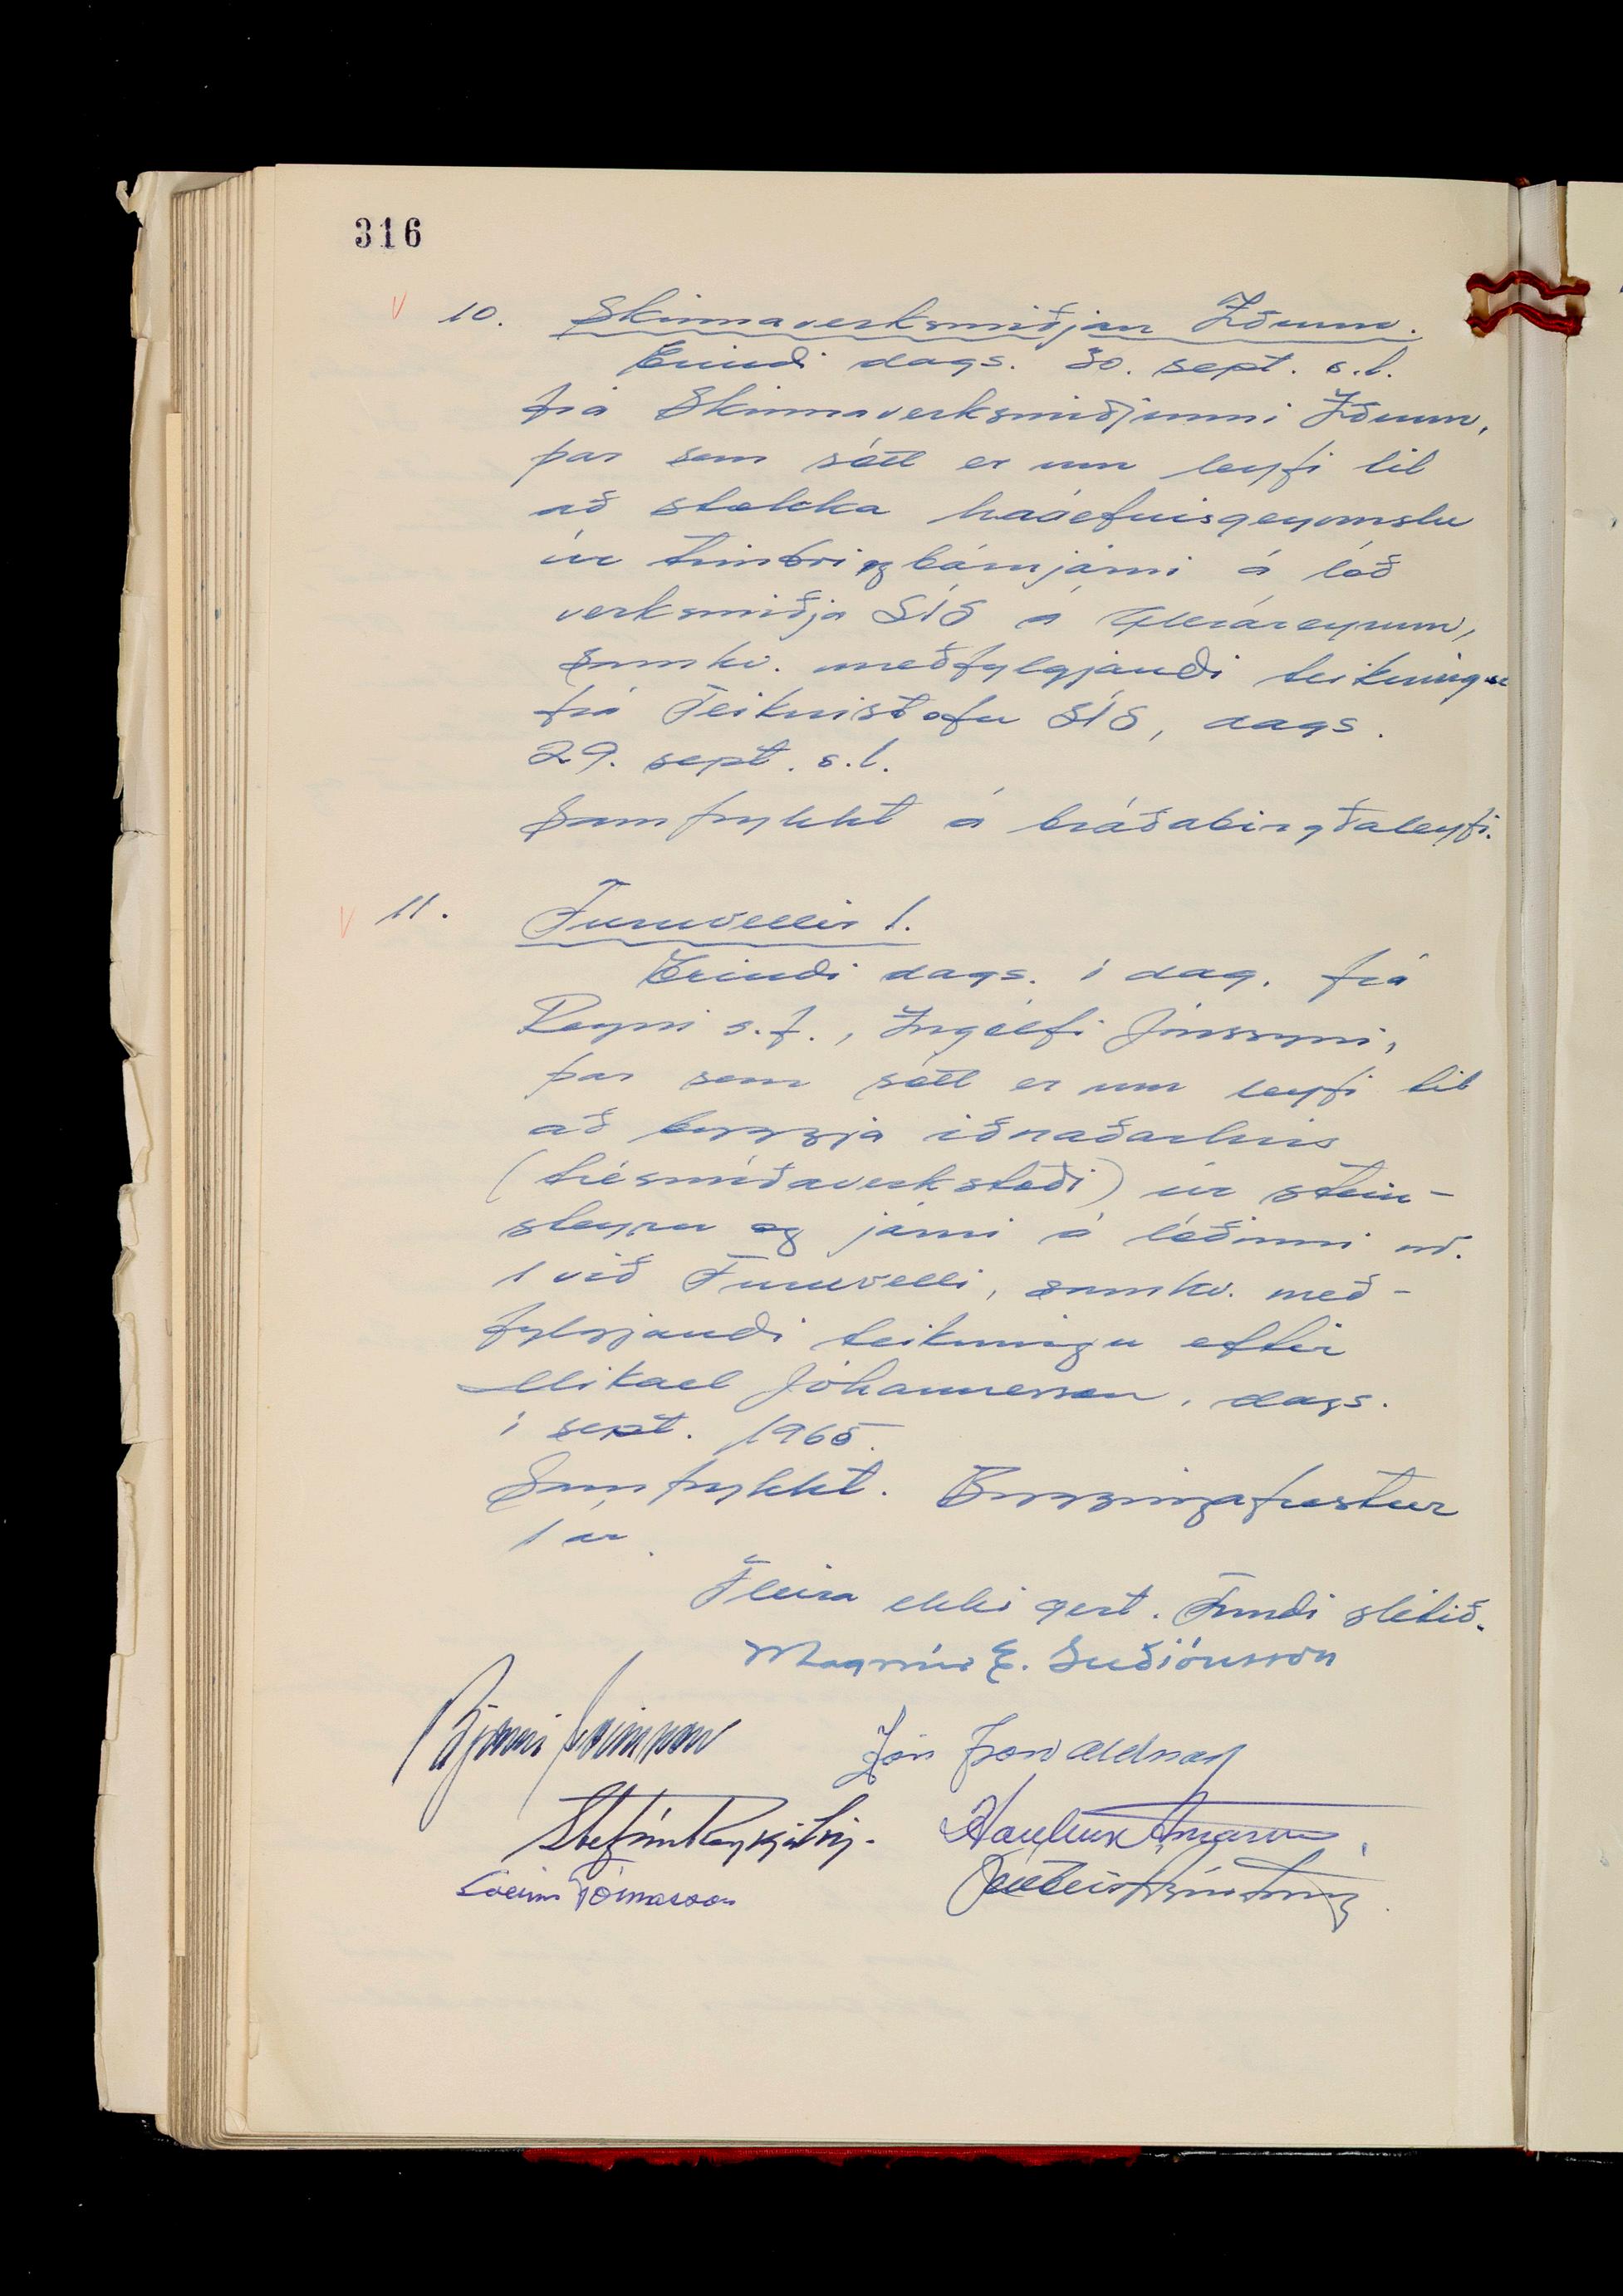 316
V 10. Skinnaverksmiðjan Iðunn.
Erindi dags. 30. sept. s.l.
frá Skinnaverksmiðjunni Iðunn,
þar sem sótt er um leyfi til
að stækka hráefnisgeymslu
úr timbri og bárujárni á lóð
verksmiðja SÍS á Gleráreyrum,
samkv. meðfylgjandi teikningu
frá Teiknistofu SÍS, dags.
29. sept. s.l.
Samþykkt á bráðabirgðaleyfi.
V 11. Furuvellir 1.
Erindi dags. í dag, frá
Reyni s.f., Ingólfi Jónssyni,
þar sem sótt er um leyfi til
að byggja iðnaðarhús
(trésmíðaverkstæði) úr stein-
steypu og járni á lóðinni nr.
1 við Furuvelli, samkv. með-
fylgjandi teikningu eftir
Mikael Jóhannesson, dags.
í sept. 1965.
Samþykkt. Byggingafrestur
1 ár.
Fleira ekki gert. Fundi slitið.
Magnús E. Guðjónsson
Bjarni Einarsson Jón Þorvaldsson
Stefán Reykjalín. Haukur Árnason
Sveinn Tómasson